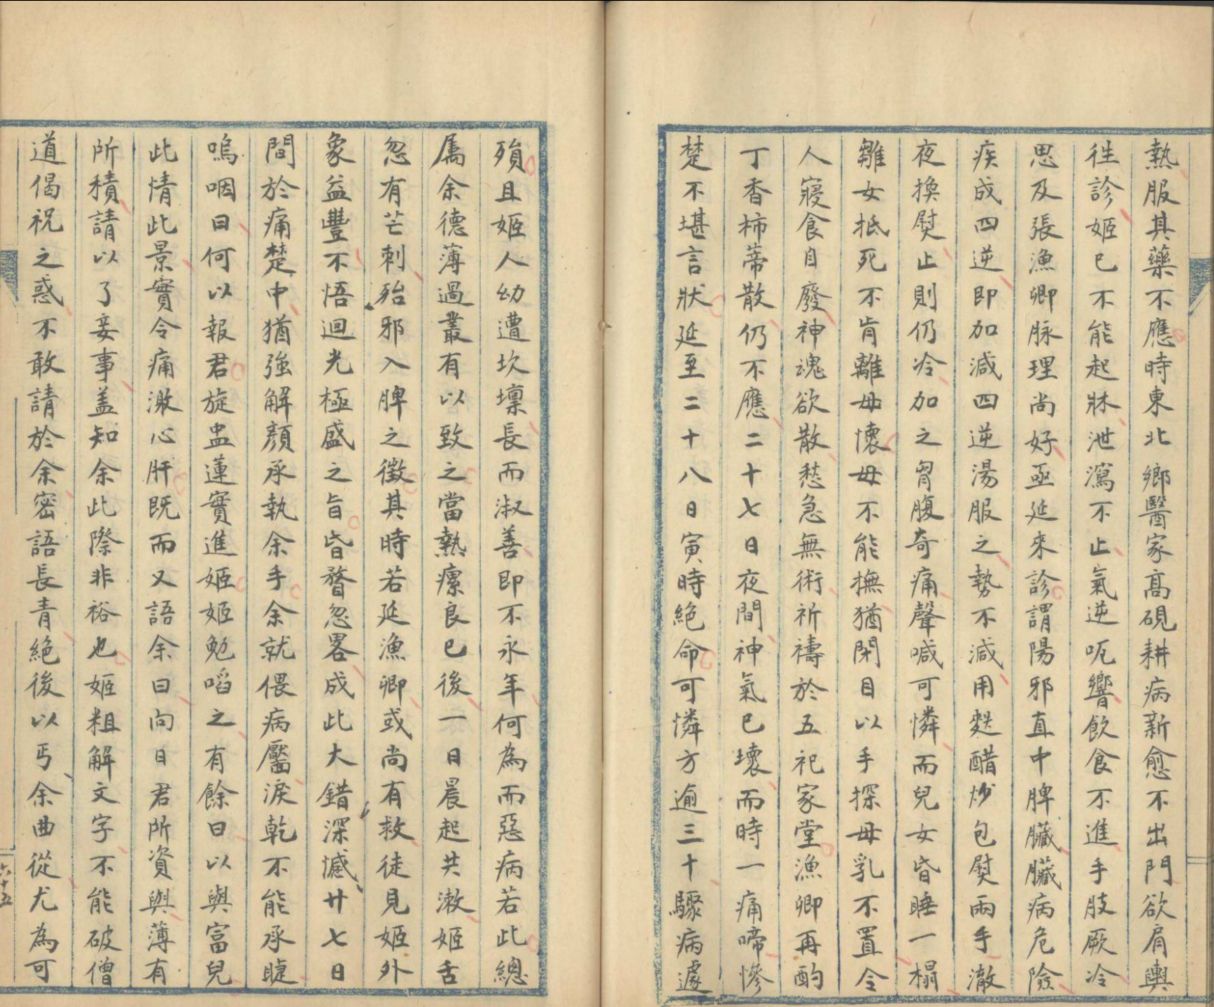 熱服其藥不應時東北鄉醫家高硯耕病新愈不出門欲肩輿
徃診姬已不能起牀泄瀉不止氣逆呃響飲食不進手肢厥冷
思及張漁卿脉理尚好亟延來診謂陽邪直中脾臟臟病危險
疾成四逆即加減四逆湯服之勢不減用麩醋炒包熨兩手澈
夜換熨止則仍冷加之胷腹奇痛聲喊可憐而兒女昏睡一榻
雛女抵死不肯離母懷母不能撫猶閉目以手探母乳不置令
人寢食自廢神魂欲散愁急無術祈禱於五祀家堂漁卿再酌
丁香柿蒂散仍不應二十七日夜間神氣已壞而時一痛啼慘
楚不堪言狀延至二十八日寅時絕命可憐方逾三十驟病遽
殞且姬人幼遭坎壈長而淑善即不永年何為而惡病若此總
屬余德薄過叢有以致之當熱瘰良已後一日晨起共漱姬舌
忽有芒刺殆邪入脾之徵其時若延漁卿或尚有救徒見姬外
象益豐不悟迴光極盛之旨昏瞀忽畧成此大錯深憾廿七日
間於痛楚中猶強解顏承執余手余就偎病靨淚乾不能承睫
嗚咽曰何以報君旋盅蓮實進姬姬勉啗之有餘曰以與富兒
此情此景實令痛激心肝既而又語余曰向日君所資與薄有
所積請以了妾事盖知余此際非裕也姬粗解文字不能破僧
道偈祝之惑不敢請於余密語長青絕後以丐余曲從尤為可
六十五